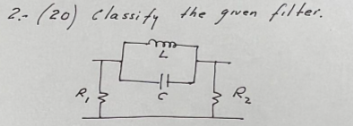 2.- (20) Classify the given filter.
L
C
R1
R2